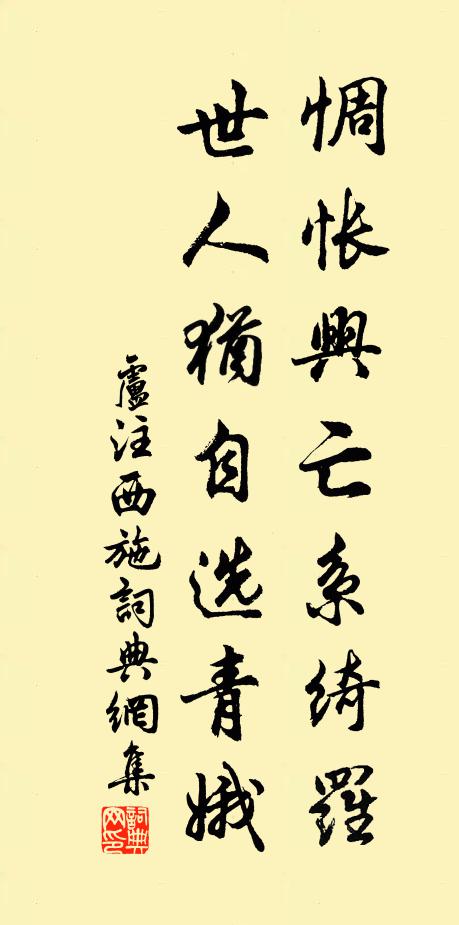 惆怅興亡系綺羅
世人猶自选青娥
盧注西施詞典網集
詞典网印